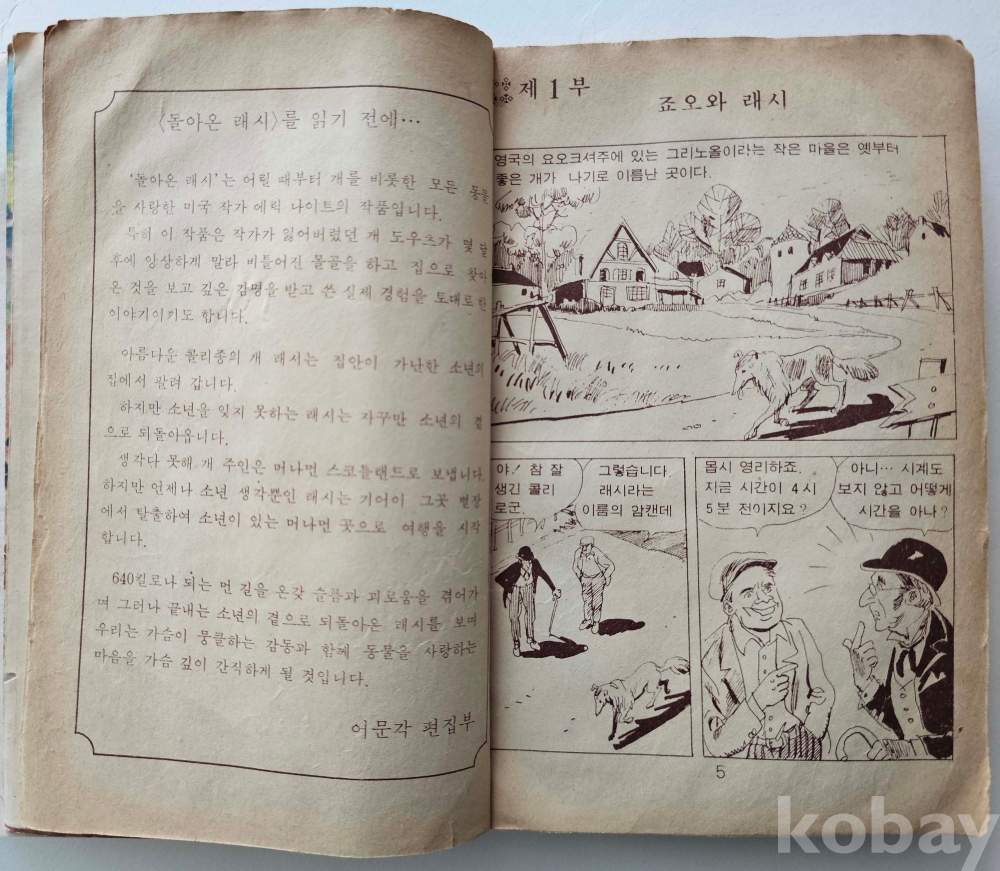 〈돌아온 래시〉를 읽기 전에…
'돌아온 래시'는 어릴 때부터 개를 비롯한 모든 동물
을 사랑한 미국 작가 에릭 나이트의 작품입니다.
특히 이 작품은 작가가 잃어버렸던 개 도우츠가 몇 달
후에 앙상하게 말라 비틀어진 몰골을 하고 집으로 찾아
온 것을 보고 깊은 감명을 받고 쓴 실제 경험을 토대로 한
이야기이기도 합니다.
아름다운 콜리종의 개 래시는 집안이 가난한 소년의
집에서 팔려 갑니다.
하지만 소년을 잊지 못하는 래시는 자꾸만 소년의 곁
으로 되돌아옵니다.
생각다 못해 개 주인은 머나먼 스코틀랜드로 보냅니다.
하지만 언제나 소년 생각뿐인 래시는 기어이 그곳 별장
에서 탈출하여 소년이 있는 머나먼 곳으로 여행을 시작
합니다.
640킬로나 되는 먼 길을 온갖 슬픔과 괴로움을 겪어가
며 그러나 끝내는 소년의 곁으로 되돌아온 래시를 보며
우리는 가슴이 뭉클하는 감동과 함께 동물을 사랑하는
마음을 가슴 깊이 간직하게 될 것입니다.
어문각 편집부
제 1 부
죠오와 래시
영국의 요오크셔주에 있는 그리노올이라는 작은 마을은 옛부터
좋은 개가 나기로 이름난 곳이다.
야! 참 잘
생긴 콜리
로군.
그렇습니다.
래시라는
이름의 암캔데
몹시 영리하죠.
지금 시간이 4시
5분 전이지요?
아니… 시계도
보지 않고 어떻게
시간을 아나?
5
kobay